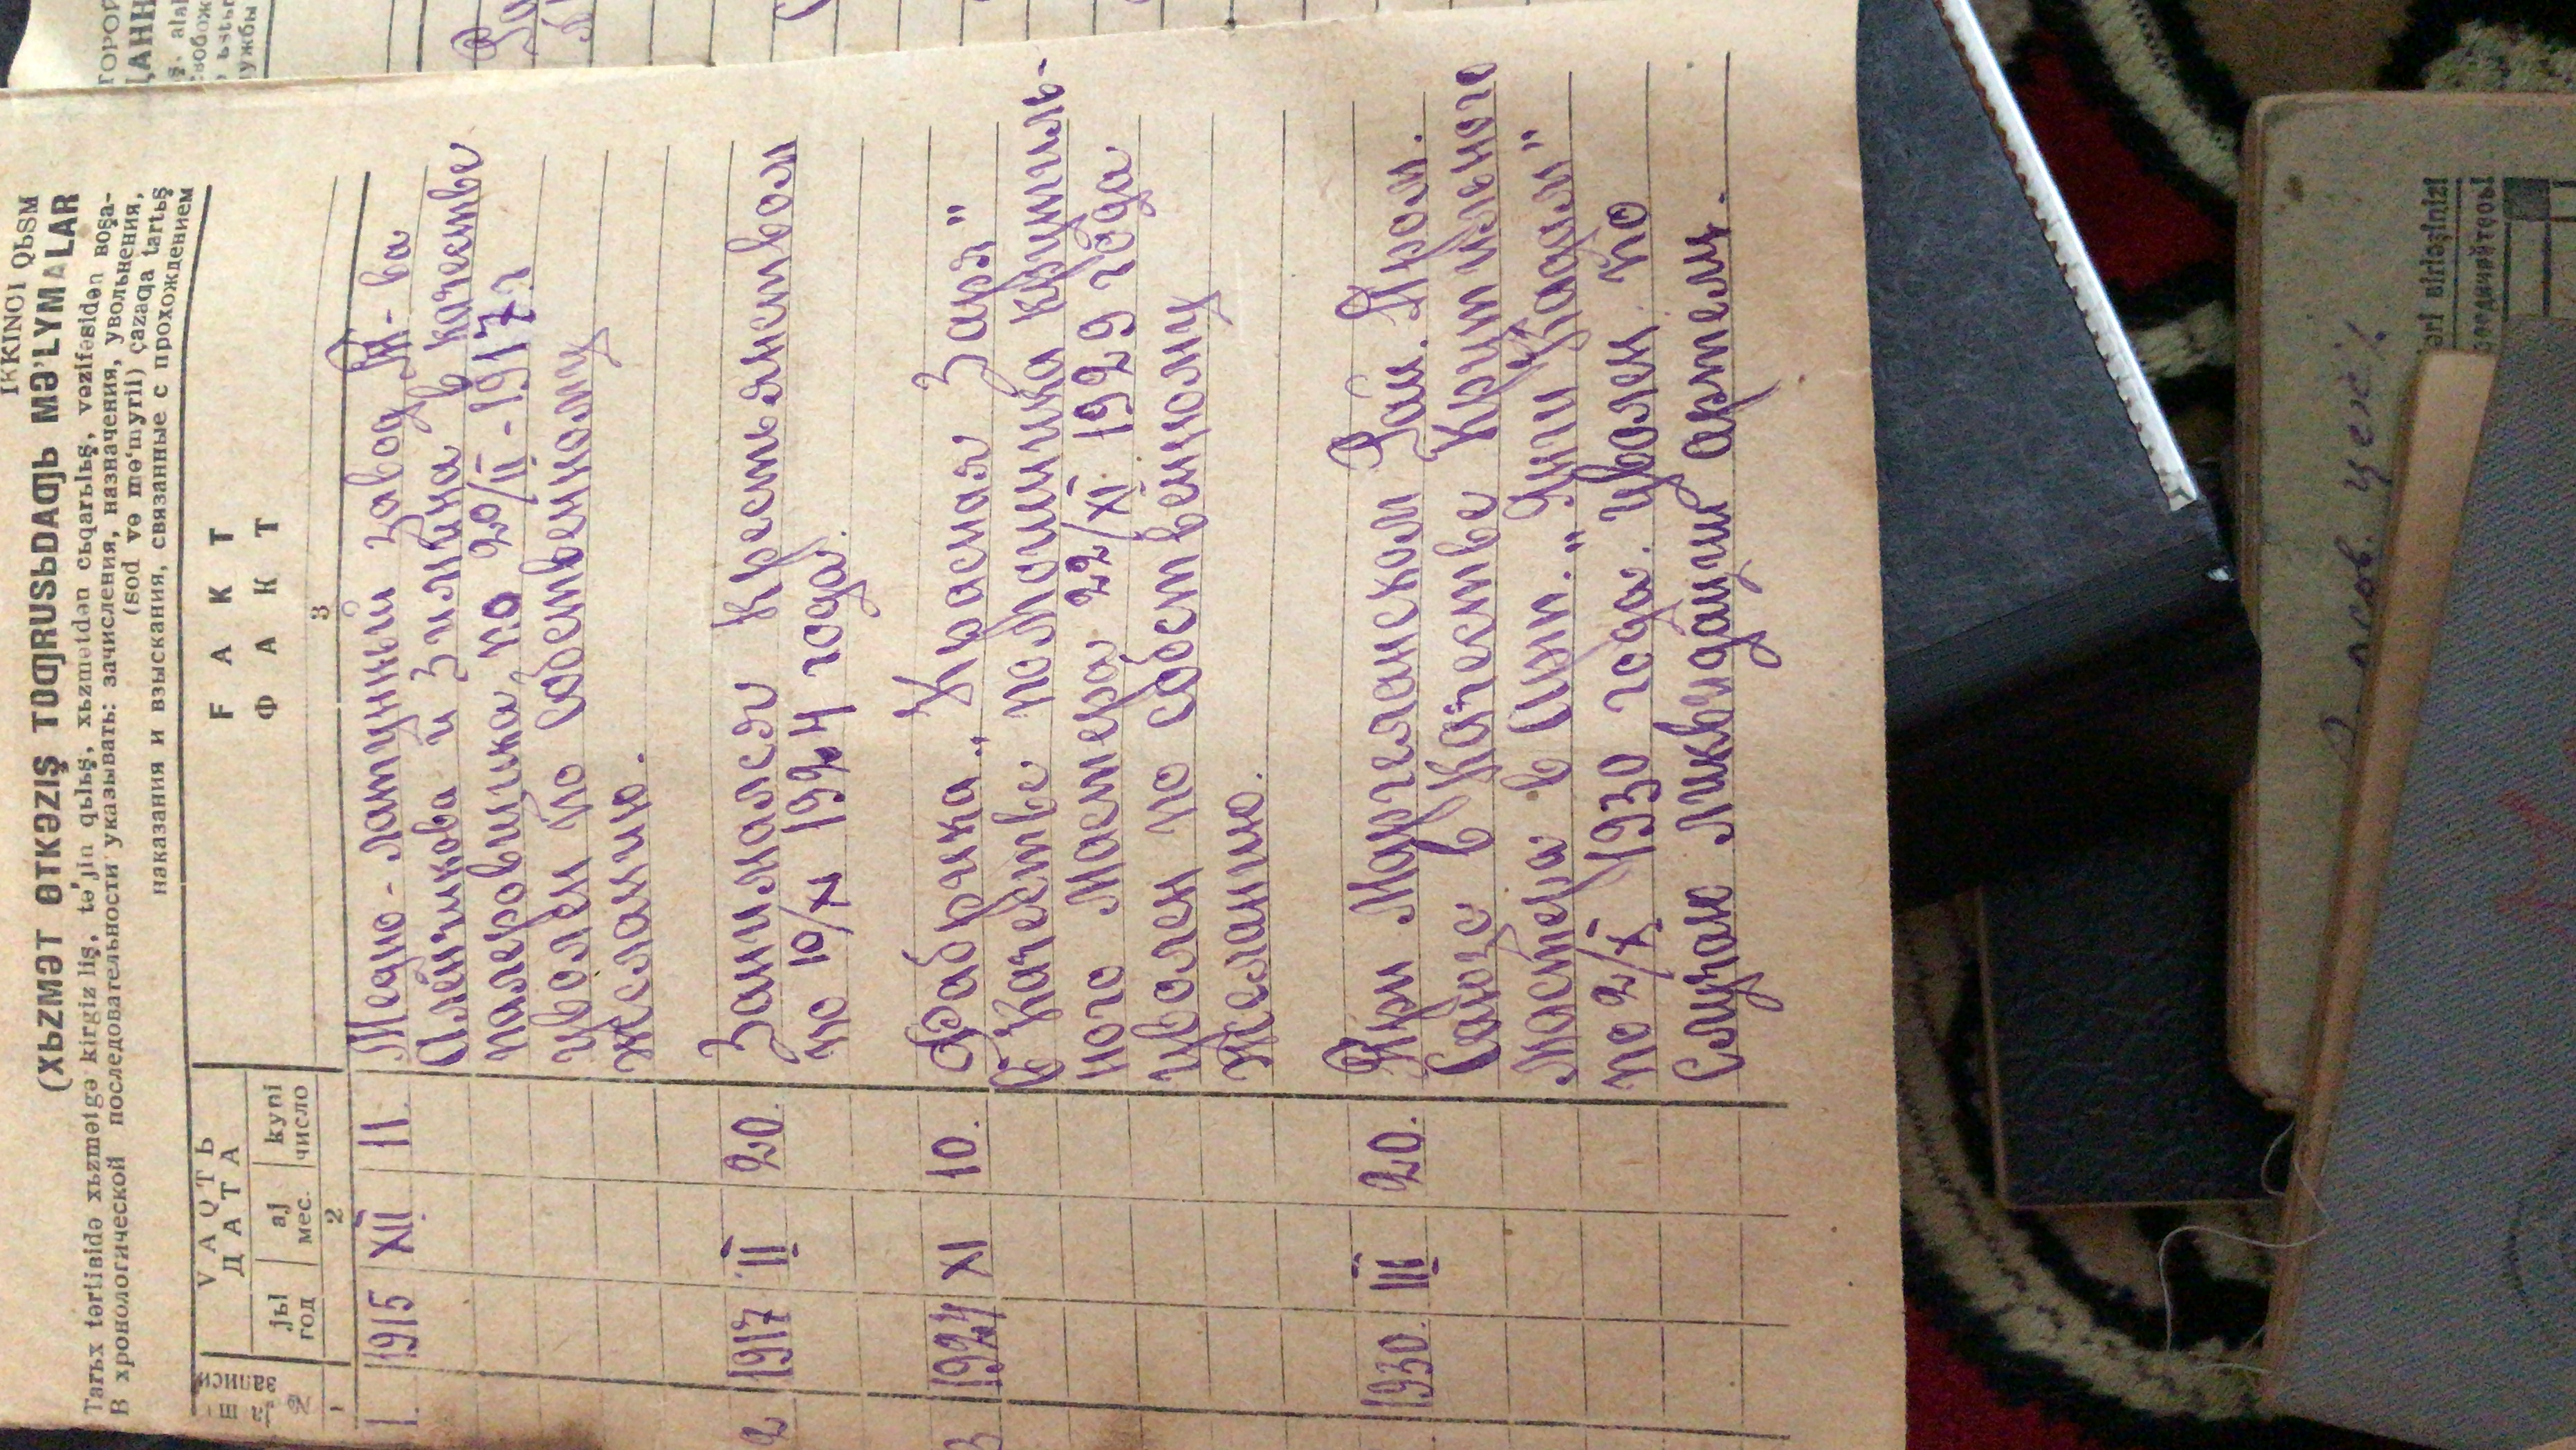 IKKINCI QЬSM
(XЬZMƏT ƟTKƏZIŞ TOƢRUSЬDAƢЬ MƏ'LYMALAR
Tarьx tərtiвidə xьzmətgə kirgizliş, tə'jin qьlьş, xьzmətdən cьqarьlьş, vəzifəsidən вoşa-
В хронологической последовательности указывать: зачисления, назначения, увольнения,
(sod və mə'myrii) çazaƣa tartьş
наказания и взыскания, связанные с прохождением
№ записи
VAQTЬ
ДАТА
FAKT
ФАКТ
jьl aj kyni
год мес. число
1 2 3
1. 1915 XII 11. Медно-латунный завод Т-ва
Аленчикова и Зимина в качестве
палеровщика, по 20/II-1917 г
уволен по собственному
желанию.
2 1917 II 20. Занимался Крестьянством
по 10/XI 1924 года.
3 1924 XI 10. Фабрика „Красная Заря"
в Качестве помошника крутиль-
ного Мастера 22/XI 1929 года
уволен по собственному
желанию.
1930. III 20. При Маргеланском Рай. Пром.
Саюзе в Качестве Крутильного
Мастера в Арт. „Янги Кадам"
по 2/X 1930 года. уволен по
Случаю ликвидации артели.
цех